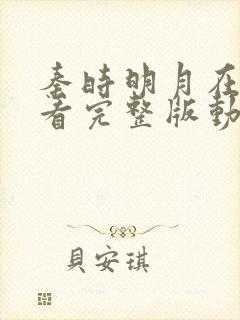 秦時明月在
看完整版動
貝安琪